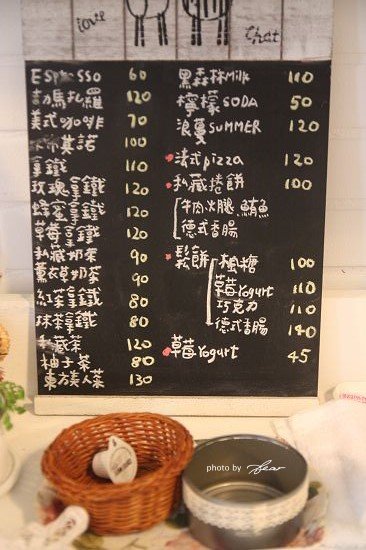 love
that
ESPRESSO 60
吉馬札羅 120
美式咖啡 70
卡布其諾 100
拿鐵 110
玫瑰拿鐵 120
蜂蜜拿鐵 120
草莓拿鐵 120
私藏奶茶 90
薰衣草奶茶 90
紅茶拿鐵 80
抹茶拿鐵 80
私藏茶 120
柚子茶 80
東方美人茶 130
黑森林Milk 110
檸檬SODA 50
浪蔓SUMMER 120
法式pizza 120
私藏捲餅 100
牛肉.火腿.鮪魚
德式香腸
鬆餅 楓糖 100
草莓Yogurt 110
巧克力 110
德式香腸 140
草莓Yogurt 45
photo by